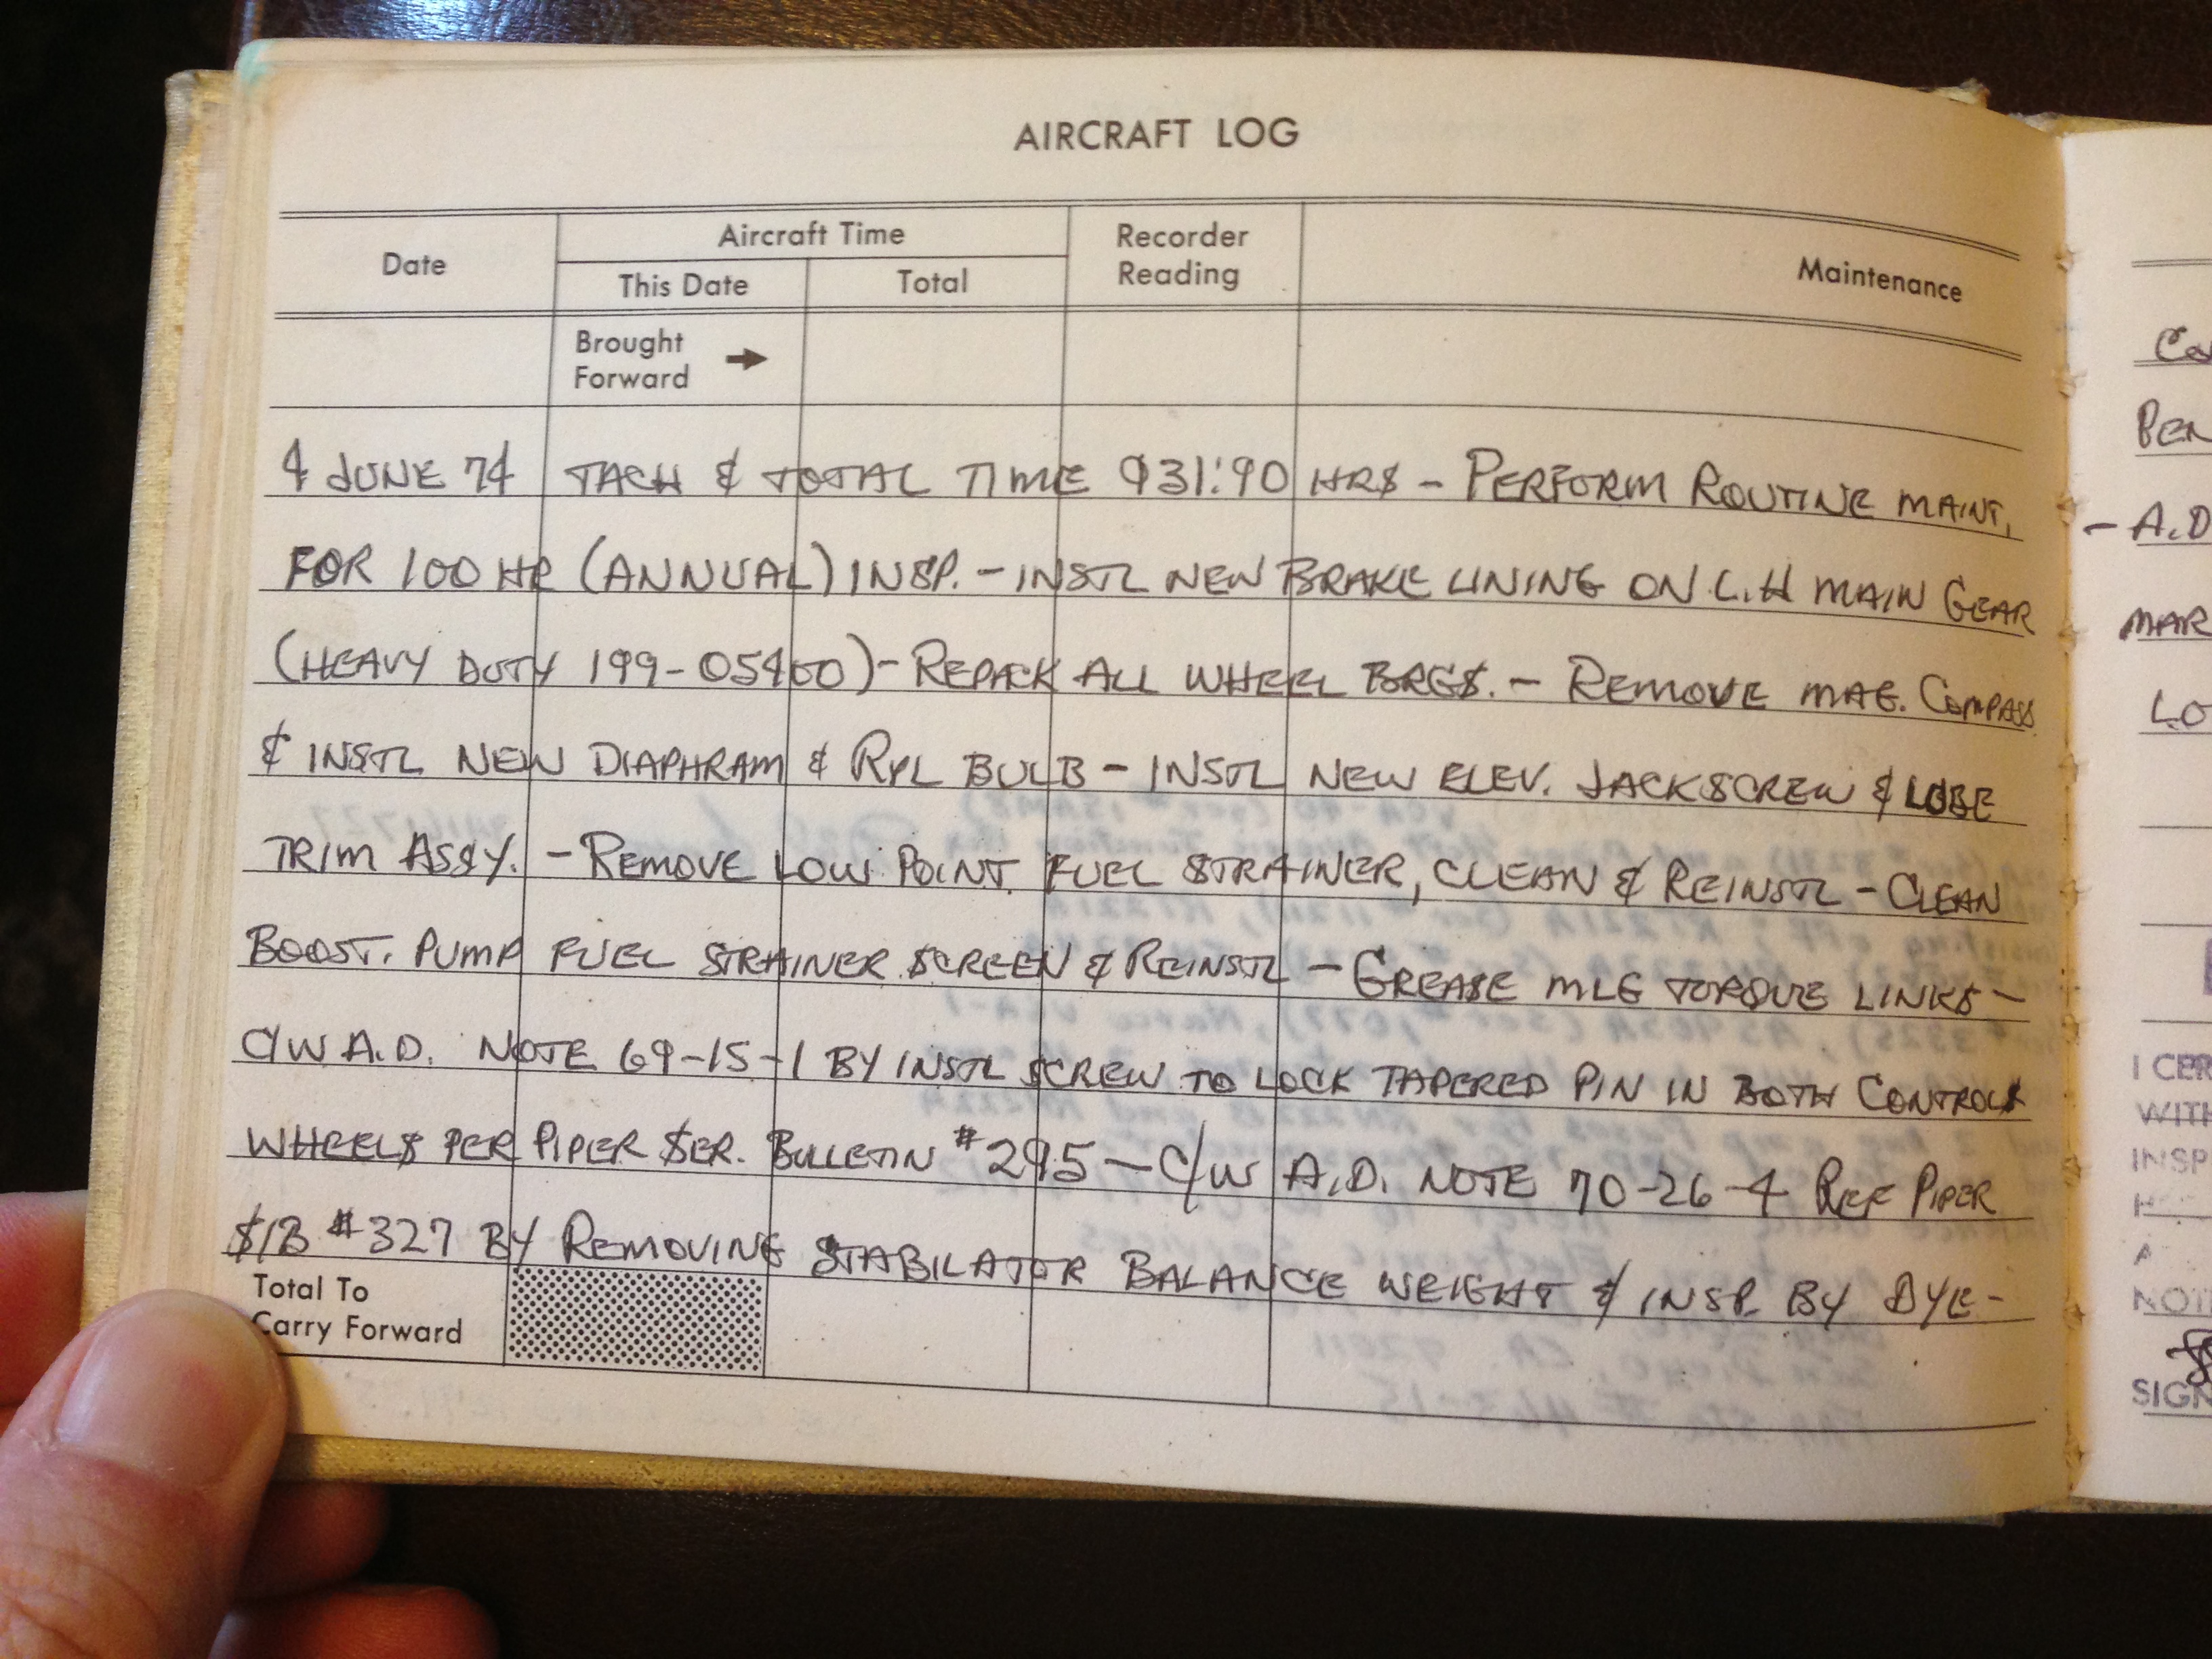 AIRCRAFT LOG
Date
Aircraft Time
This Date
Total
Recorder
Reading
Maintenance
Brought
Forward →
4 JUNE 74 TACH & TOTAL TIME 931.90 HRS - PERFORM ROUTINE MAINT,
FOR 100 HR (ANNUAL) INSP. - INSTL NEW BRAKE LINING ON L.H MAIN GEAR
(HEAVY DUTY 199-05400) - REPACK ALL WHEEL BRGS. - REMOVE MAG. COMPASS
& INSTL NEW DIAPHRAM & RPL BULB - INSTL NEW ELEV. JACKSCREW & LUBE
TRIM ASSY. - REMOVE LOW POINT. FUEL STRAINER, CLEAN & REINSTL - CLEAN
BOOST. PUMP FUEL STRAINER SCREEN & REINSTL - GREASE MLG TORQUE LINKS -
C/W A.D. NOTE 69-15-1 BY INSTL SCREW TO LOCK TAPERED PIN IN BOTH CONTROL
WHEELS PER PIPER SER. BULLETIN #295 - C/W A.D. NOTE 70-26-4 REF PIPER
S/B #327 BY REMOVING STABILATOR BALANCE WEIGHT & INSP. BY DYE-
Total To
Carry Forward
- A.D
MAR
LO
I CER
WITH
INSP
NOT
SIGN